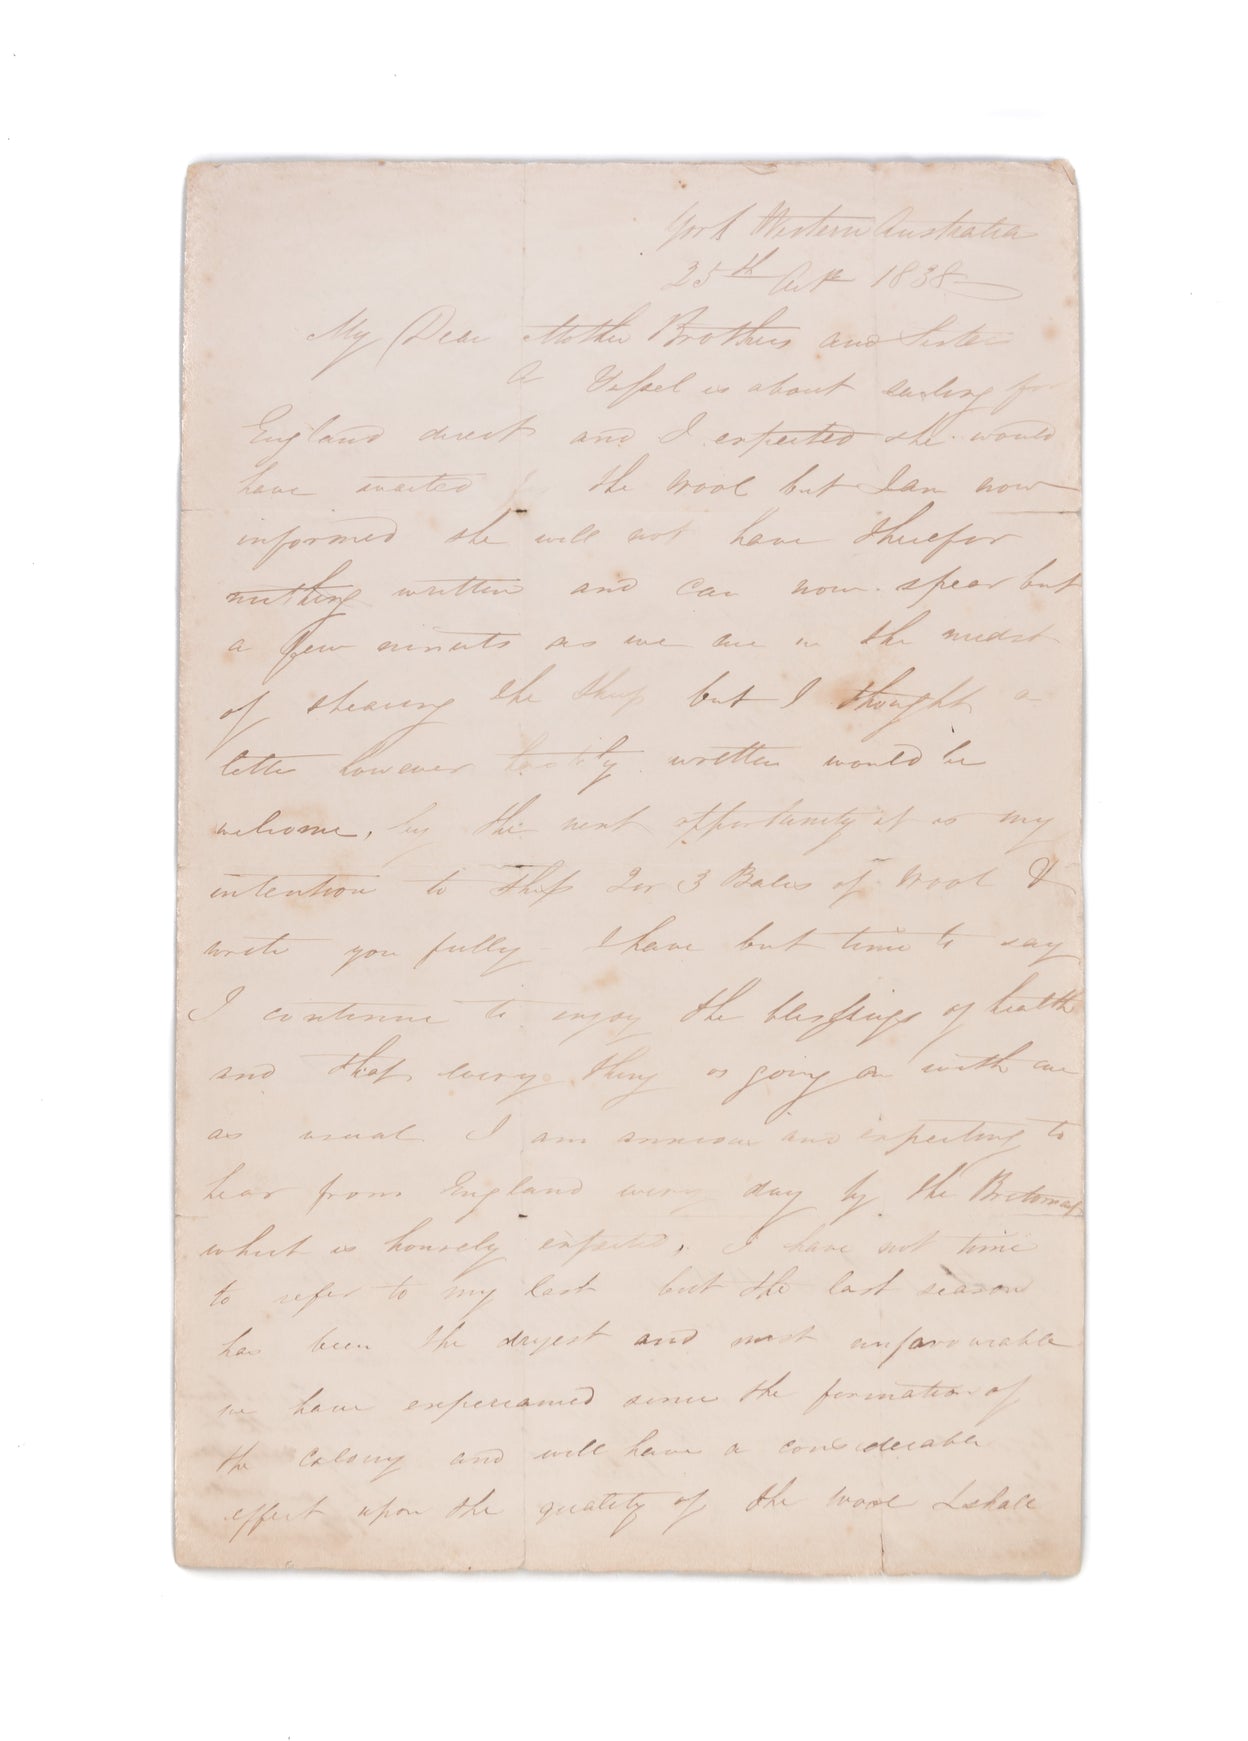 York Western Australia
25th Octr 1838
My Dear Mother Brothers and Sister
A Vessel is about sailing for
England direct and I expected she would
have waited for the wool but I am now
informed she will not have therefor
nothing written and can now spear but
a few minuts as we are in the midst
of shearing the sheep but I thought a
letter however hastily written would be
welcome, by the next opportunity it is my
intention to ship 2 or 3 Bales of Wool &
write you fully - I have but time to say
I continue to enjoy the blessings of health
and that every thing is going on with me
as usual I am anxious and expecting to
hear from England every day by the
which is hourely expected, I have not time
to refer to my last but the last season
has been the dryest and most unfavourable
we have experianced since the formation of
the colony and will have a considerable
effect upon the quality of the wool I shall